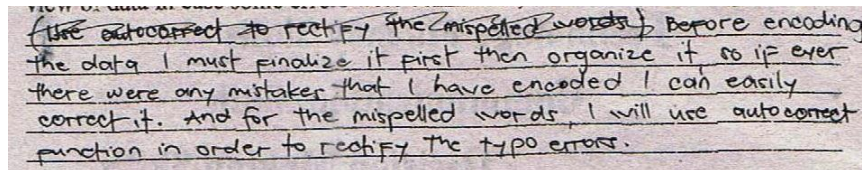 (Use autocorrect to rectify the mispelled words) Before encoding
the data I must finalize it first then organize it, so if ever
there were any mistakes that I have encoded I can easily
correct it. And for the mispelled words, I will use autocorrect
function in order to rectify the typo errors.